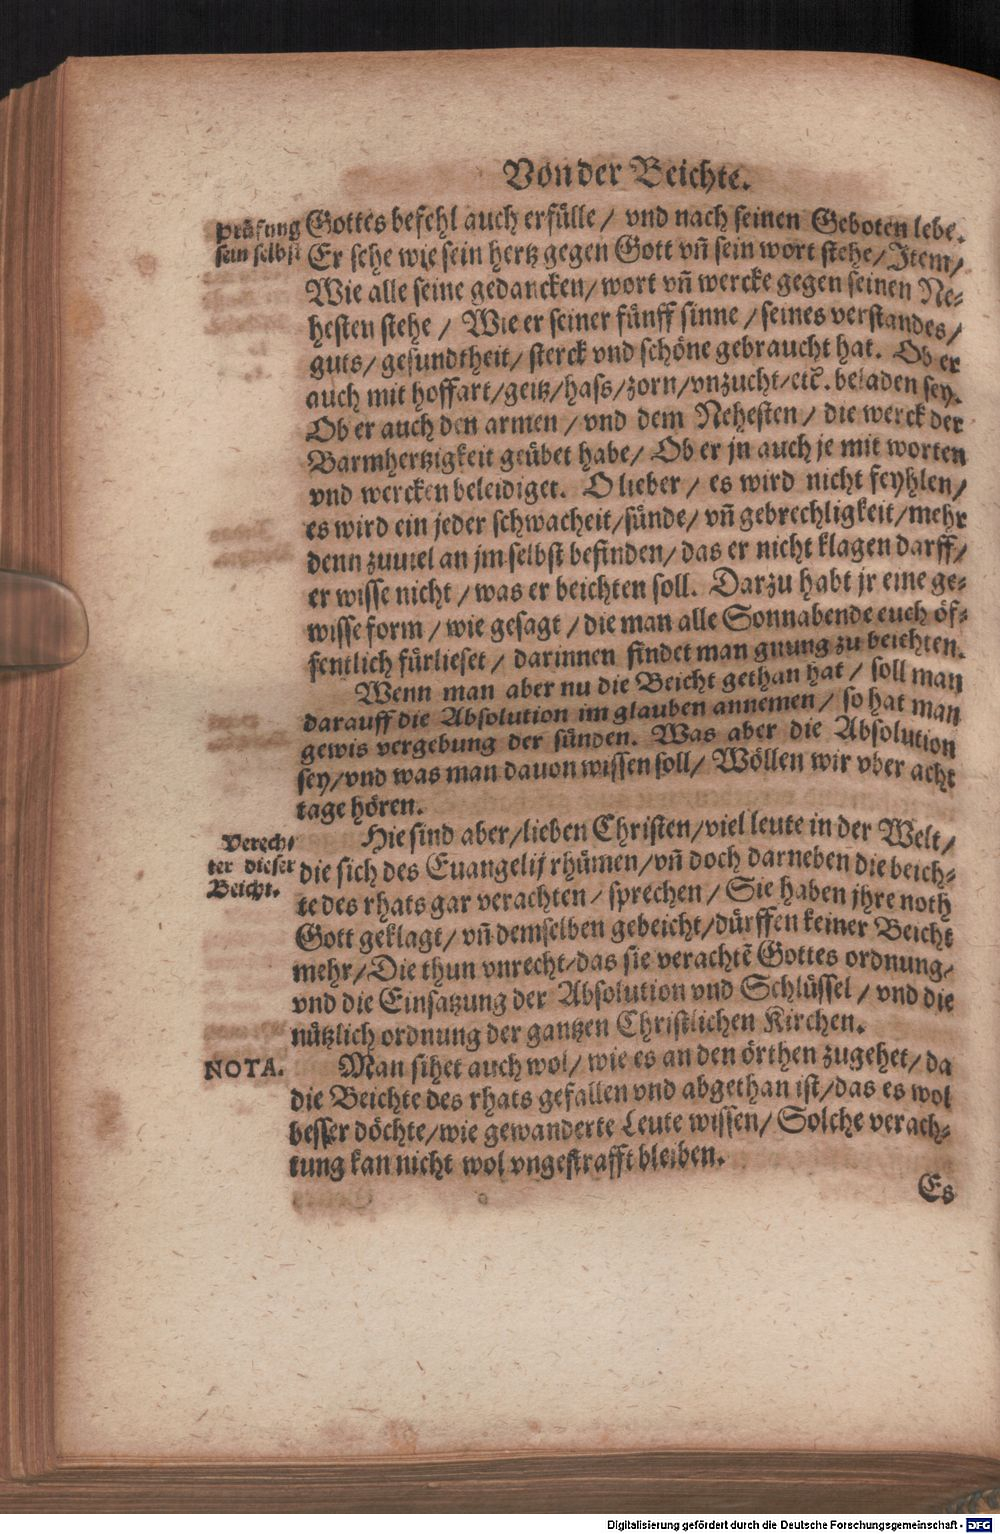 Von der Beichte.
prüfung
sein selbst
Gottes befehl auch erfülle / vnd nach seinen Geboten lebe.
Er sehe wie sein hertz gegen Gott vñ sein wort stehe / Item /
Wie alle seine gedancken / wort vñ wercke gegen seinen Ne-
hesten stehe / Wie er seiner fünff sinne / seines verstandes /
guts / gesundtheit / sterck vnd schöne gebraucht hat. Ob er
auch mit hoffart / geitz / hass / zorn / vnzucht / etc. beladen sey.
Ob er auch den armen / vnd dem Nehesten / die werck der
Barmhertzigkeit geübet habe / Ob er jn auch je mit worten
vnd wercken beleidiget. O lieber / es wird nicht feyhlen /
es wird ein jeder schwacheit / sünde / vñ gebrechligkeit / mehr
denn zuuiel an jm selbst befinden / das er nicht klagen darff /
er wisse nicht / was er beichten soll. Darzu habt jr eine ge-
wisse form / wie gesagt / die man alle Sonnabende euch öf-
fentlich fürlieset / darinnen findet man gnung zu beichten.
Wenn man aber nu die Beicht gethan hat / soll man
darauff die Absolution im glauben annemen / so hat man
gewis vergebung der sünden. Was aber die Absolution
sey / vnd was man dauon wissen soll / Wöllen wir vber acht
tage hören.
Verech-
ter dieser
Beicht.
Hie sind aber / lieben Christen / viel leute in der Welt /
die sich des Euangelij rhümen / vñ doch darneben die beich-
te des rhats gar verachten / sprechen / Sie haben jhre noth
Gott geklagt / vñ demselben gebeicht / dürffen keiner Beicht
mehr / Die thun vnrecht / das sie verachtẽ Gottes ordnung /
vnd die Einsatzung der Absolution vnd Schlüssel / vnd die
nützlich ordnung der gantzen Christlichen Kirchen.
NOTA.
Man sihet auch wol / wie es an den örthen zugehet / da
die Beichte des rhats gefallen vnd abgethan ist / das es wol
besser döchte / wie gewanderte Leute wissen / Solche verach-
tung kan nicht wol vngestrafft bleiben.
Es
Digitalisierung gefördert durch die Deutsche Forschungsgemeinschaft - DFG